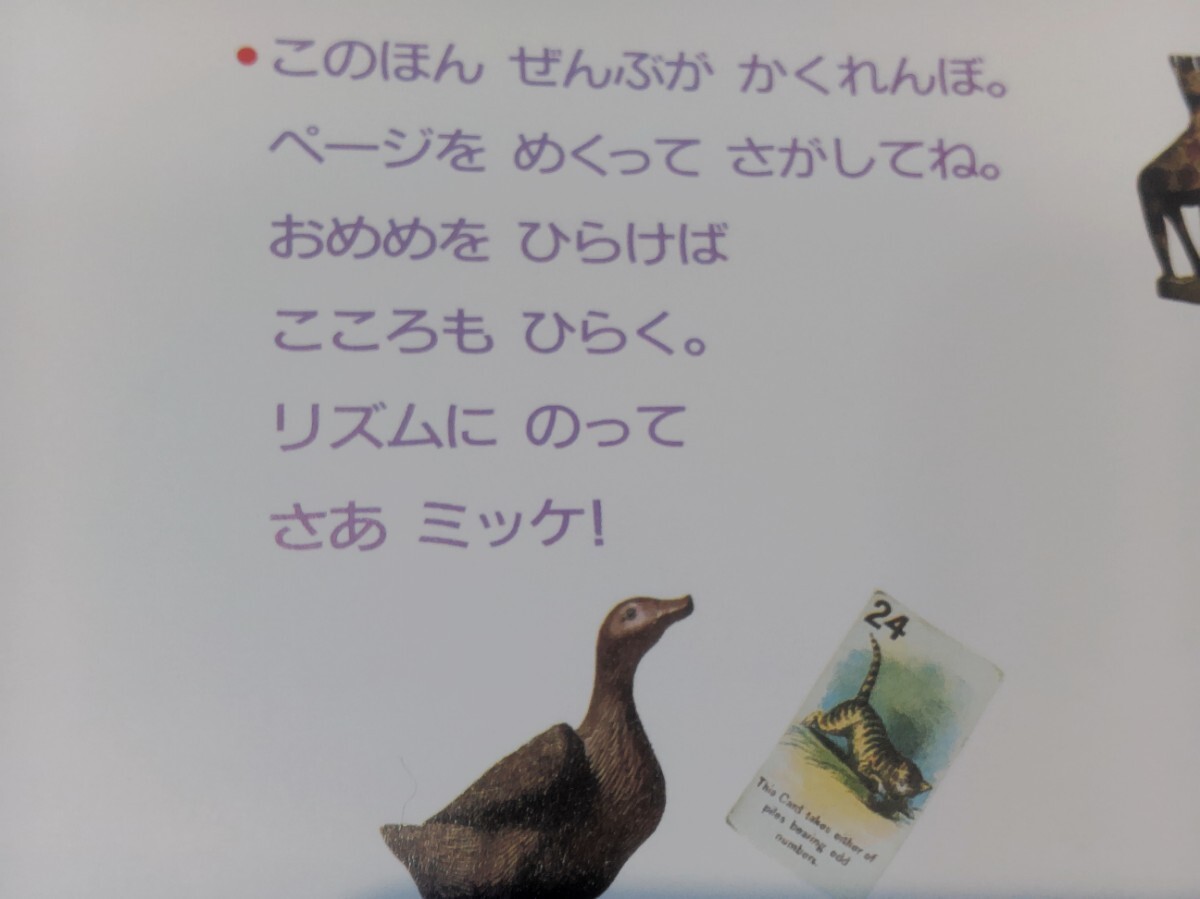 •このほん ぜんぶが かくれんぼ。
ページを めくって さがしてね。
おめめを ひらけば
こころも ひらく。
リズムに のって
さあ ミッケ!
24
This Card takes either of
piles bearing odd
numbers.